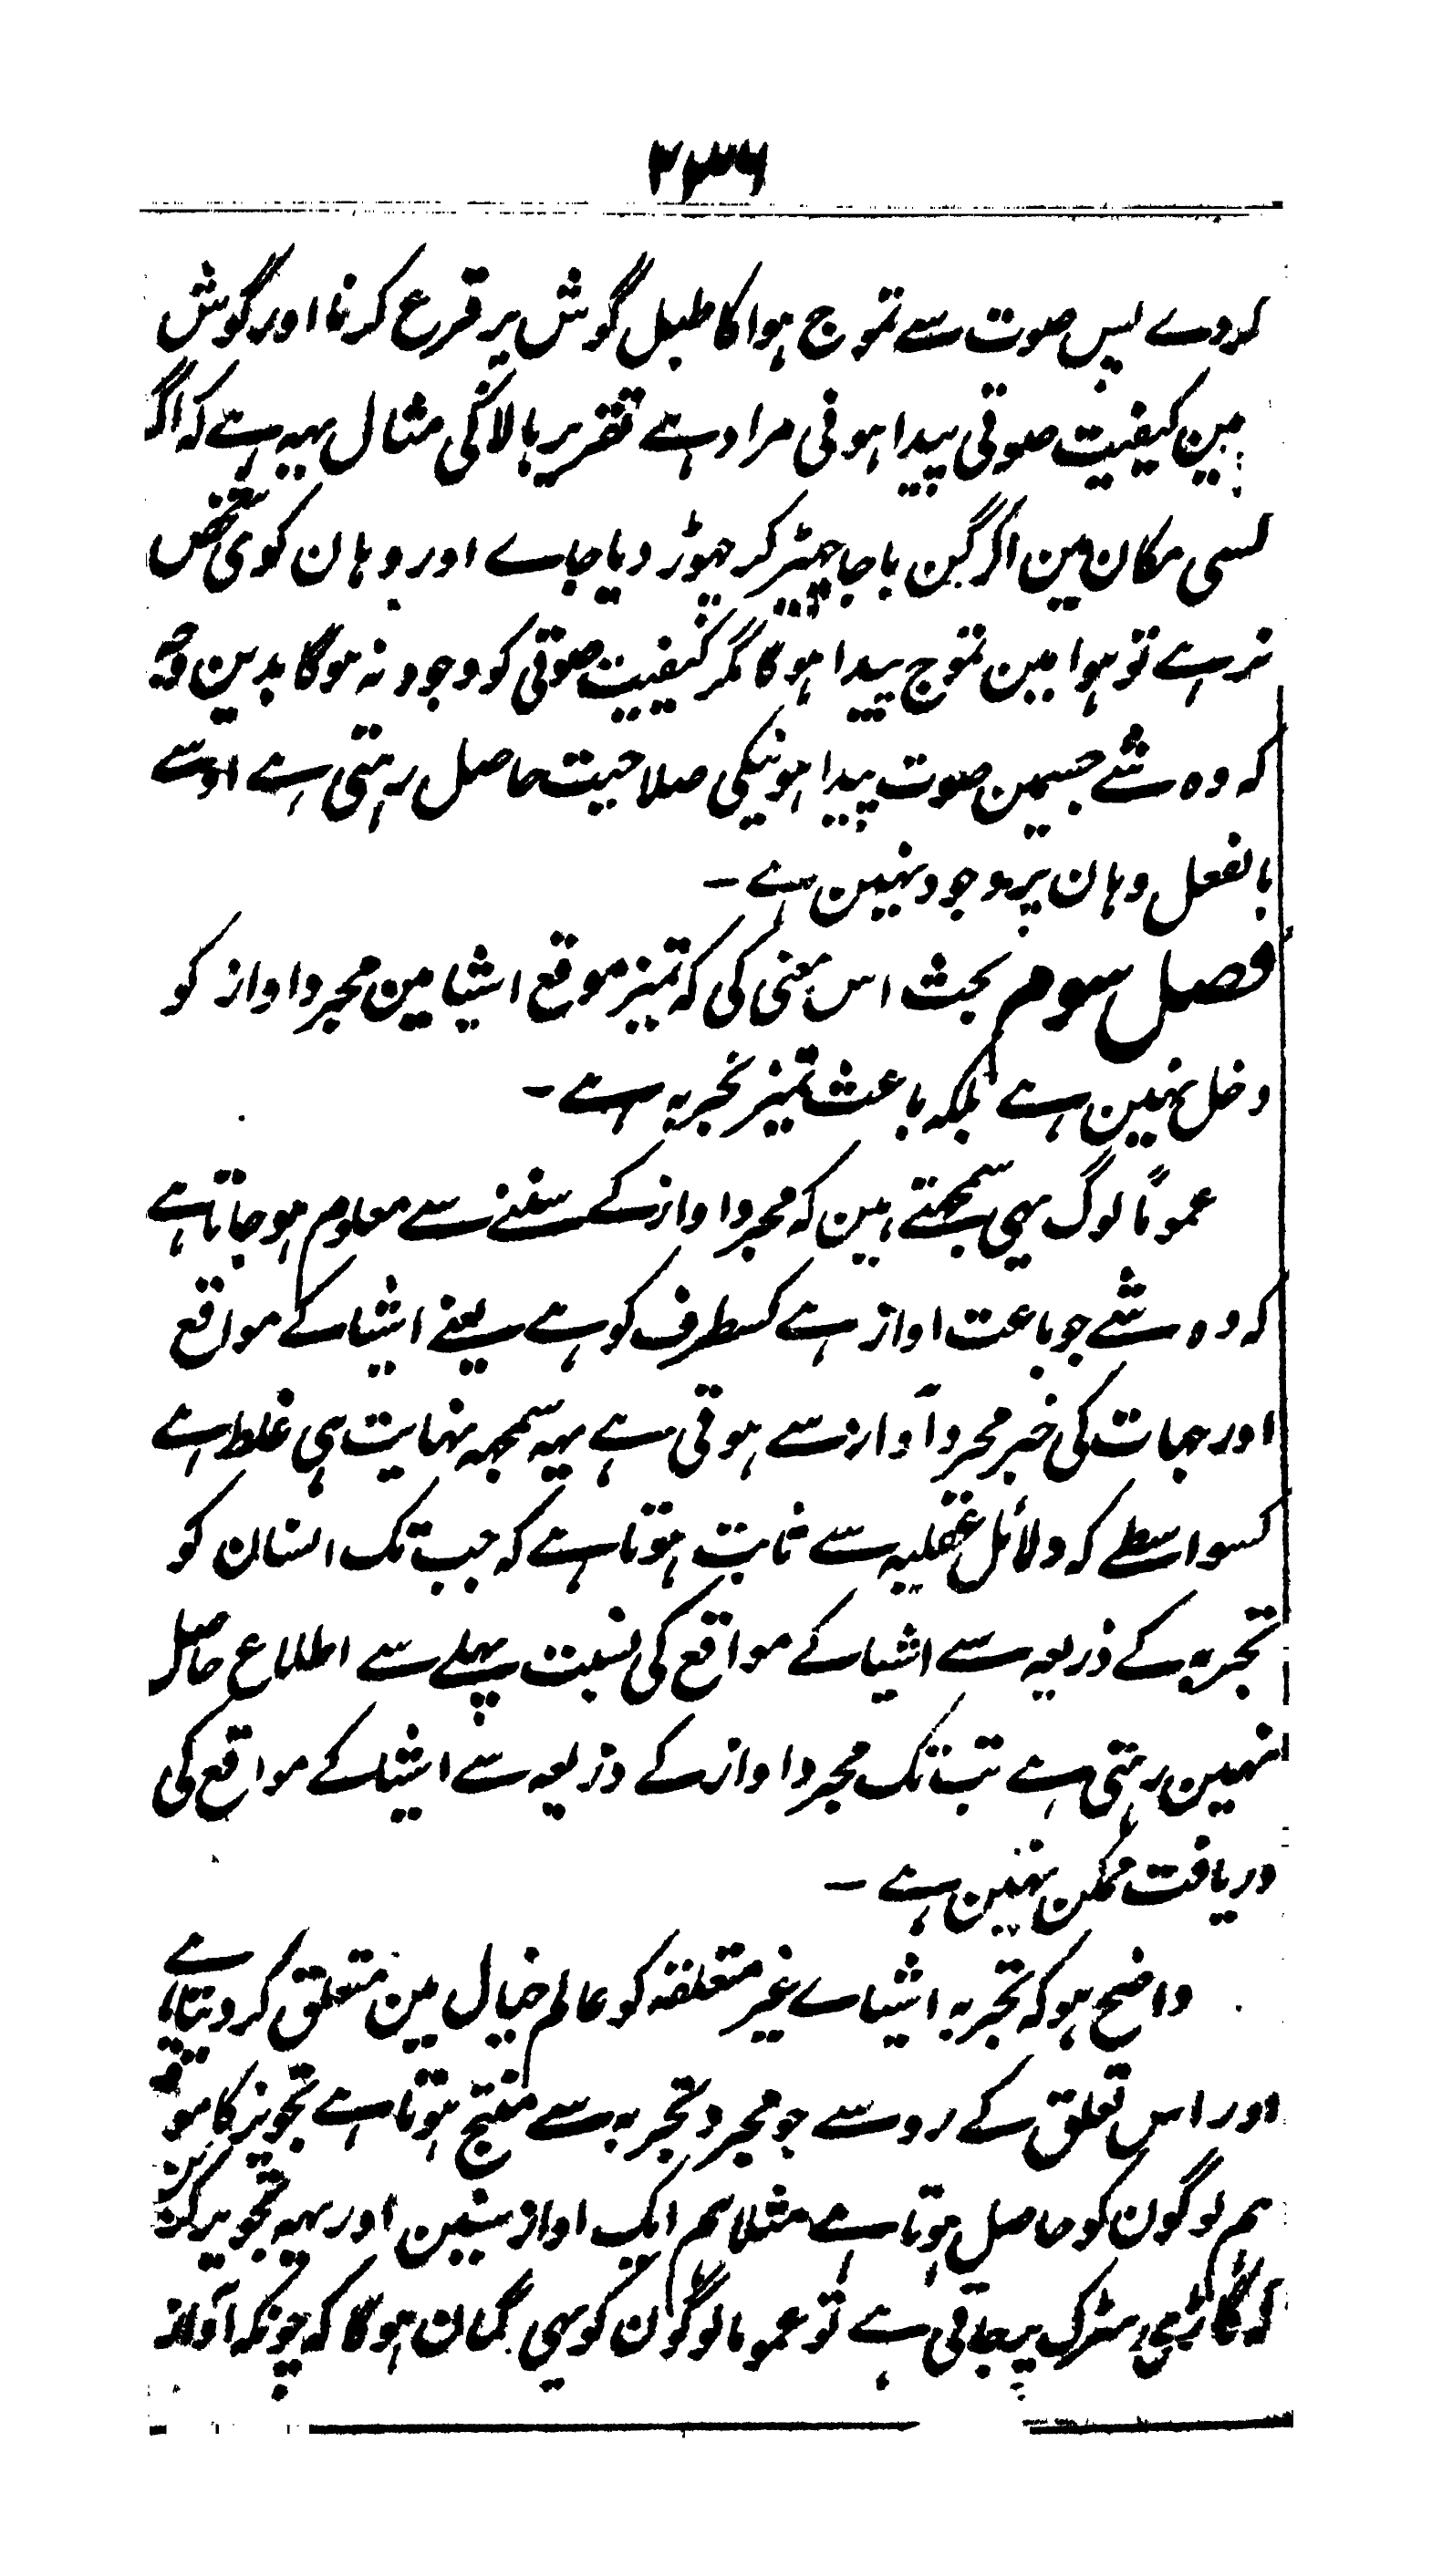 ۲۳۶
کردے پس صوت سے تموج ہوا کا طبل گوش پر قرع کرنا اور گوش
مین کیفیت صوتی پیدا ہونی مراد ہے تقریر بالا کی مثال یہہ ہے کہ اگر
کسی مکان مین ارگن باجا چھیڑ کر چھوڑ دیا جاے اور وہان کوئی شخص
نرہے تو ہوا مین تموج پیدا ہوگا مگر کیفیت صوتی کو وجود نہ ہوگا بدین وجہ
کہ وہ شے جسمین صوت پیدا ہونیکی صلاحیت حاصل رہتی ہے اوسے
بالفعل وہان پر وجود نہین ہے ـ
فصل سوم بحث اس معنی کی کہ تمیز موقع اشیا مین مجرد اواز کو
دخل نہین ہے بلکہ باعث تمیز تجربہ ہے ـ
عموماً لوگ یہی سمجھتے ہین کہ مجرد اواز کے سننے سے معلوم ہوجاتا ہے
کہ وہ شے جو باعث اواز ہے کسطرف کو ہے یعنے اشیا کے مواقع
اور جہات کی خبر مجرد آواز سے ہوتی ہے یہہ سمجھہ نہایت ہی غلط ہے
کسواسطے کہ دلائل عقلیہ سے ثابت ہوتا ہے کہ جب تک انسان کو
تجربہ کے ذریعہ سے اشیا کے مواقع کی نسبت پہلے سے اطلاع حاصل
نہین رہتی ہے تب تک مجرد اواز کے ذریعہ سے اشیا کے مواقع کی
دریافت ممکن نہین ہے ـ
واضح ہو کہ تجربہ اشیاے غیر متعلقہ کو عالم خیال مین متعلق کردیتا ہے
اور اس تعلق کے رو سے جو مجرد تجربہ سے منتج ہوتا ہے تجویز کا موقع
ہم لوگون کو حاصل ہوتا ہے مثلا ہم ایک اواز سنین اور یہہ تجویز کرین
کہ گاڑی سڑک پر جاتی ہے تو عموما لوگون کو یہی گمان ہوگا کہ چونکہ آواز